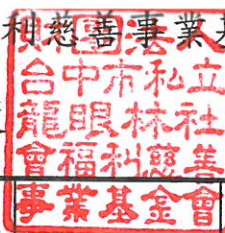 利慈善事業基
財團法人
台中市私立
龍眼林社
會福利慈善
事業基金會